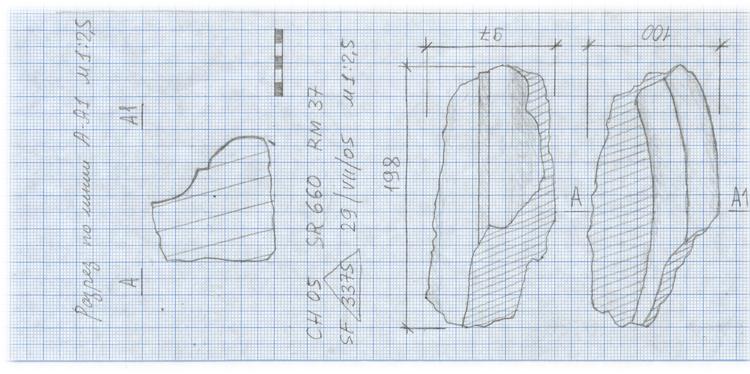 Разрез по линии А А1 М 1:2,5
А
А1
CH 05 SR 660 RM 37
SF 3375 29/VII/05 М 1:2,5
198
97
100
А
А1